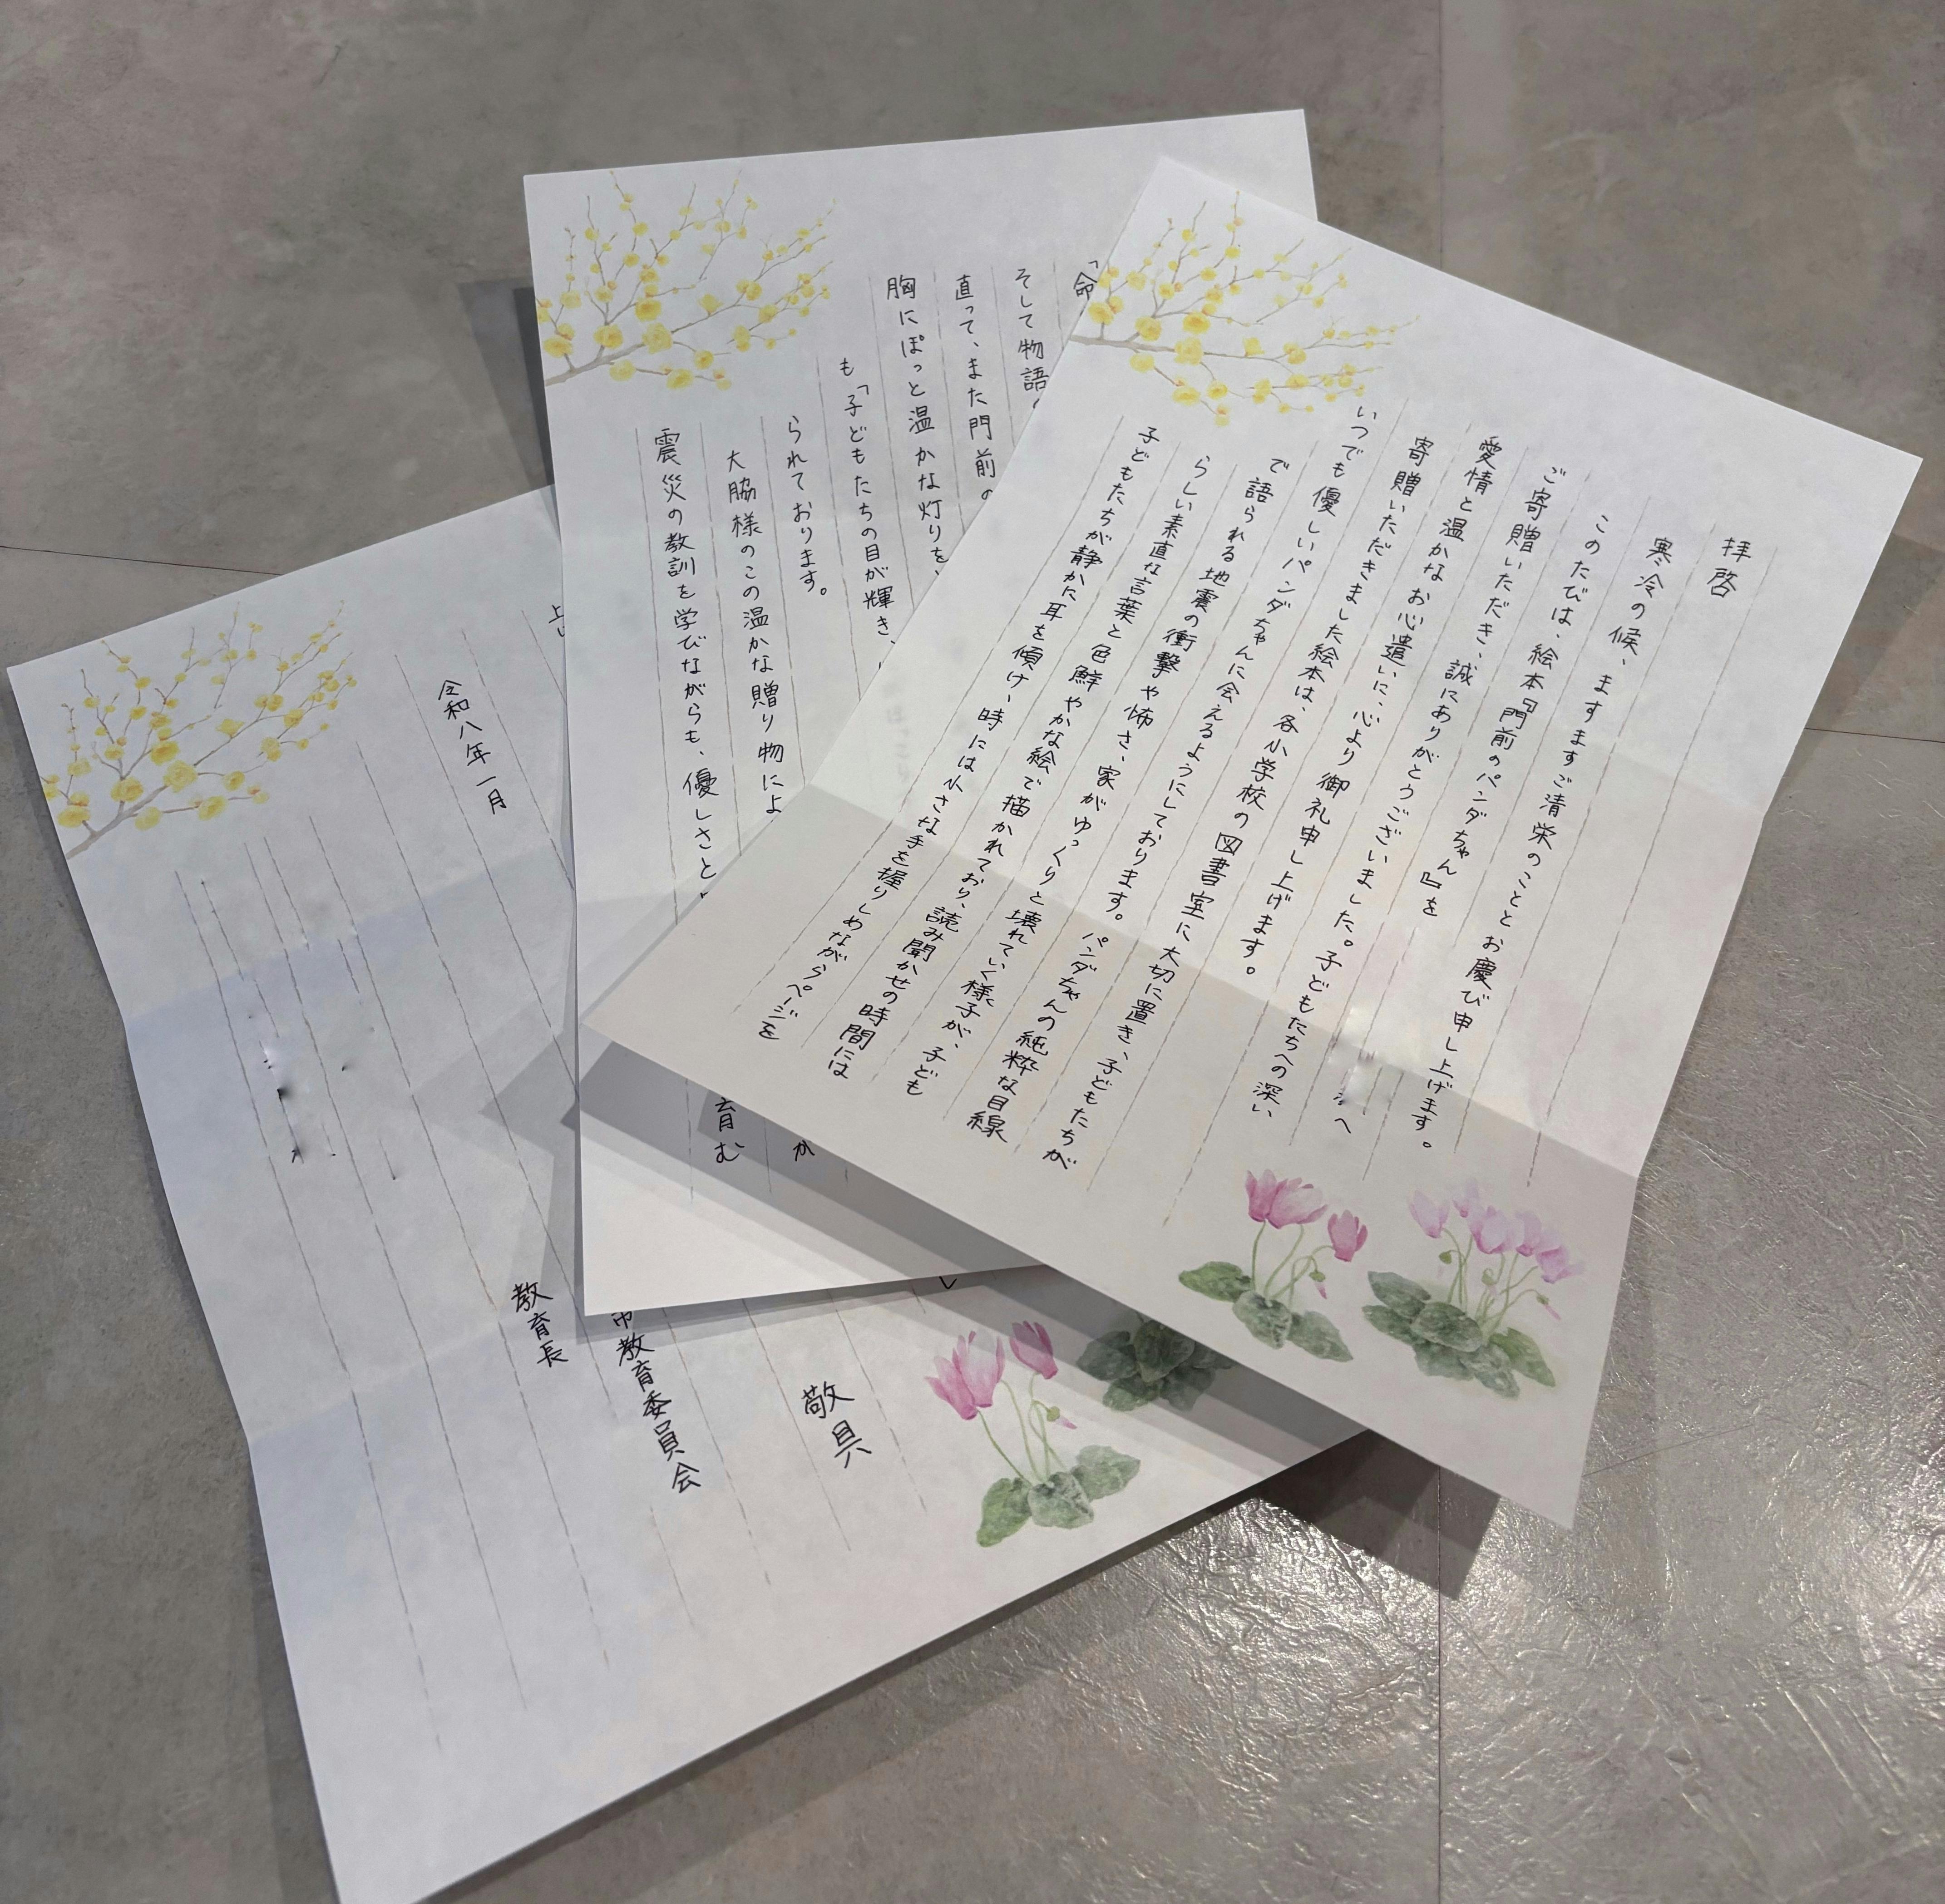 拝啓
寒冷の候、ますますご清栄のこととお慶び申し上げます。
このたびは、絵本『門前のパンダちゃん』を
へ
ご寄贈いただき、誠にありがとうございました。子どもたちへの深い
愛情と温かなお心遣いに、心より御礼申し上げます。
寄贈いただきました絵本は、各小学校の図書室に大切に置き、子どもたちが
いつでも優しいパンダちゃんに会えるようにしております。パンダちゃんの純粋な目線
で語られる地震の衝撃や怖さ、家がゆっくりと壊れていく様子が、子ども
らしい素直な言葉と色鮮やかな絵で描かれており、読み聞かせの時間には
子どもたちが静かに耳を傾け、時には小さな手を握りしめながらページを
「命
そして物語
直って、また門前の
胸にぽっと温かな灯りを
も「子どもたちの目が輝き、
られております。
大脇様のこの温かな贈り物によ
か
震災の教訓を学びながらも、優しさと
育む
敬具
令和八年一月
市教育委員会
教育長